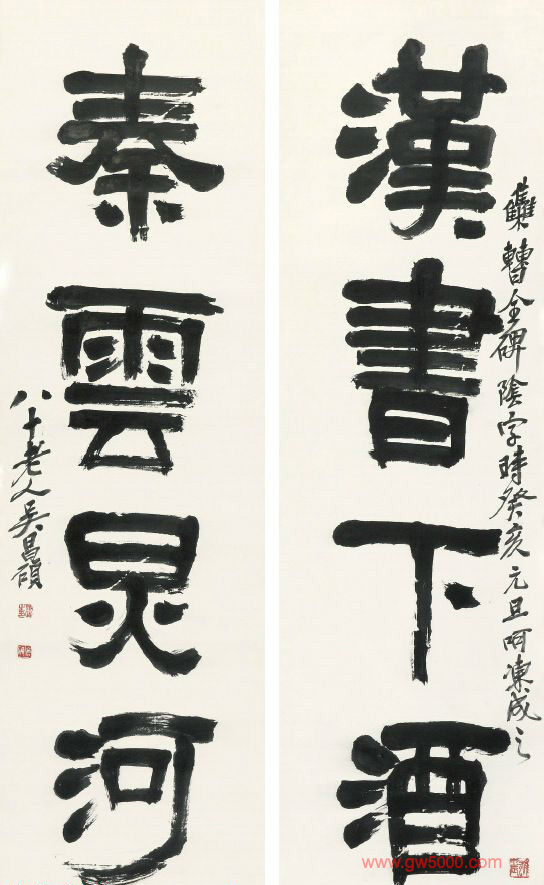 漢書下酒
雧曹全碑陰字時癸亥元旦呵凍成之
秦雲炅河
八十老人吳昌碩
www.gw5000.com